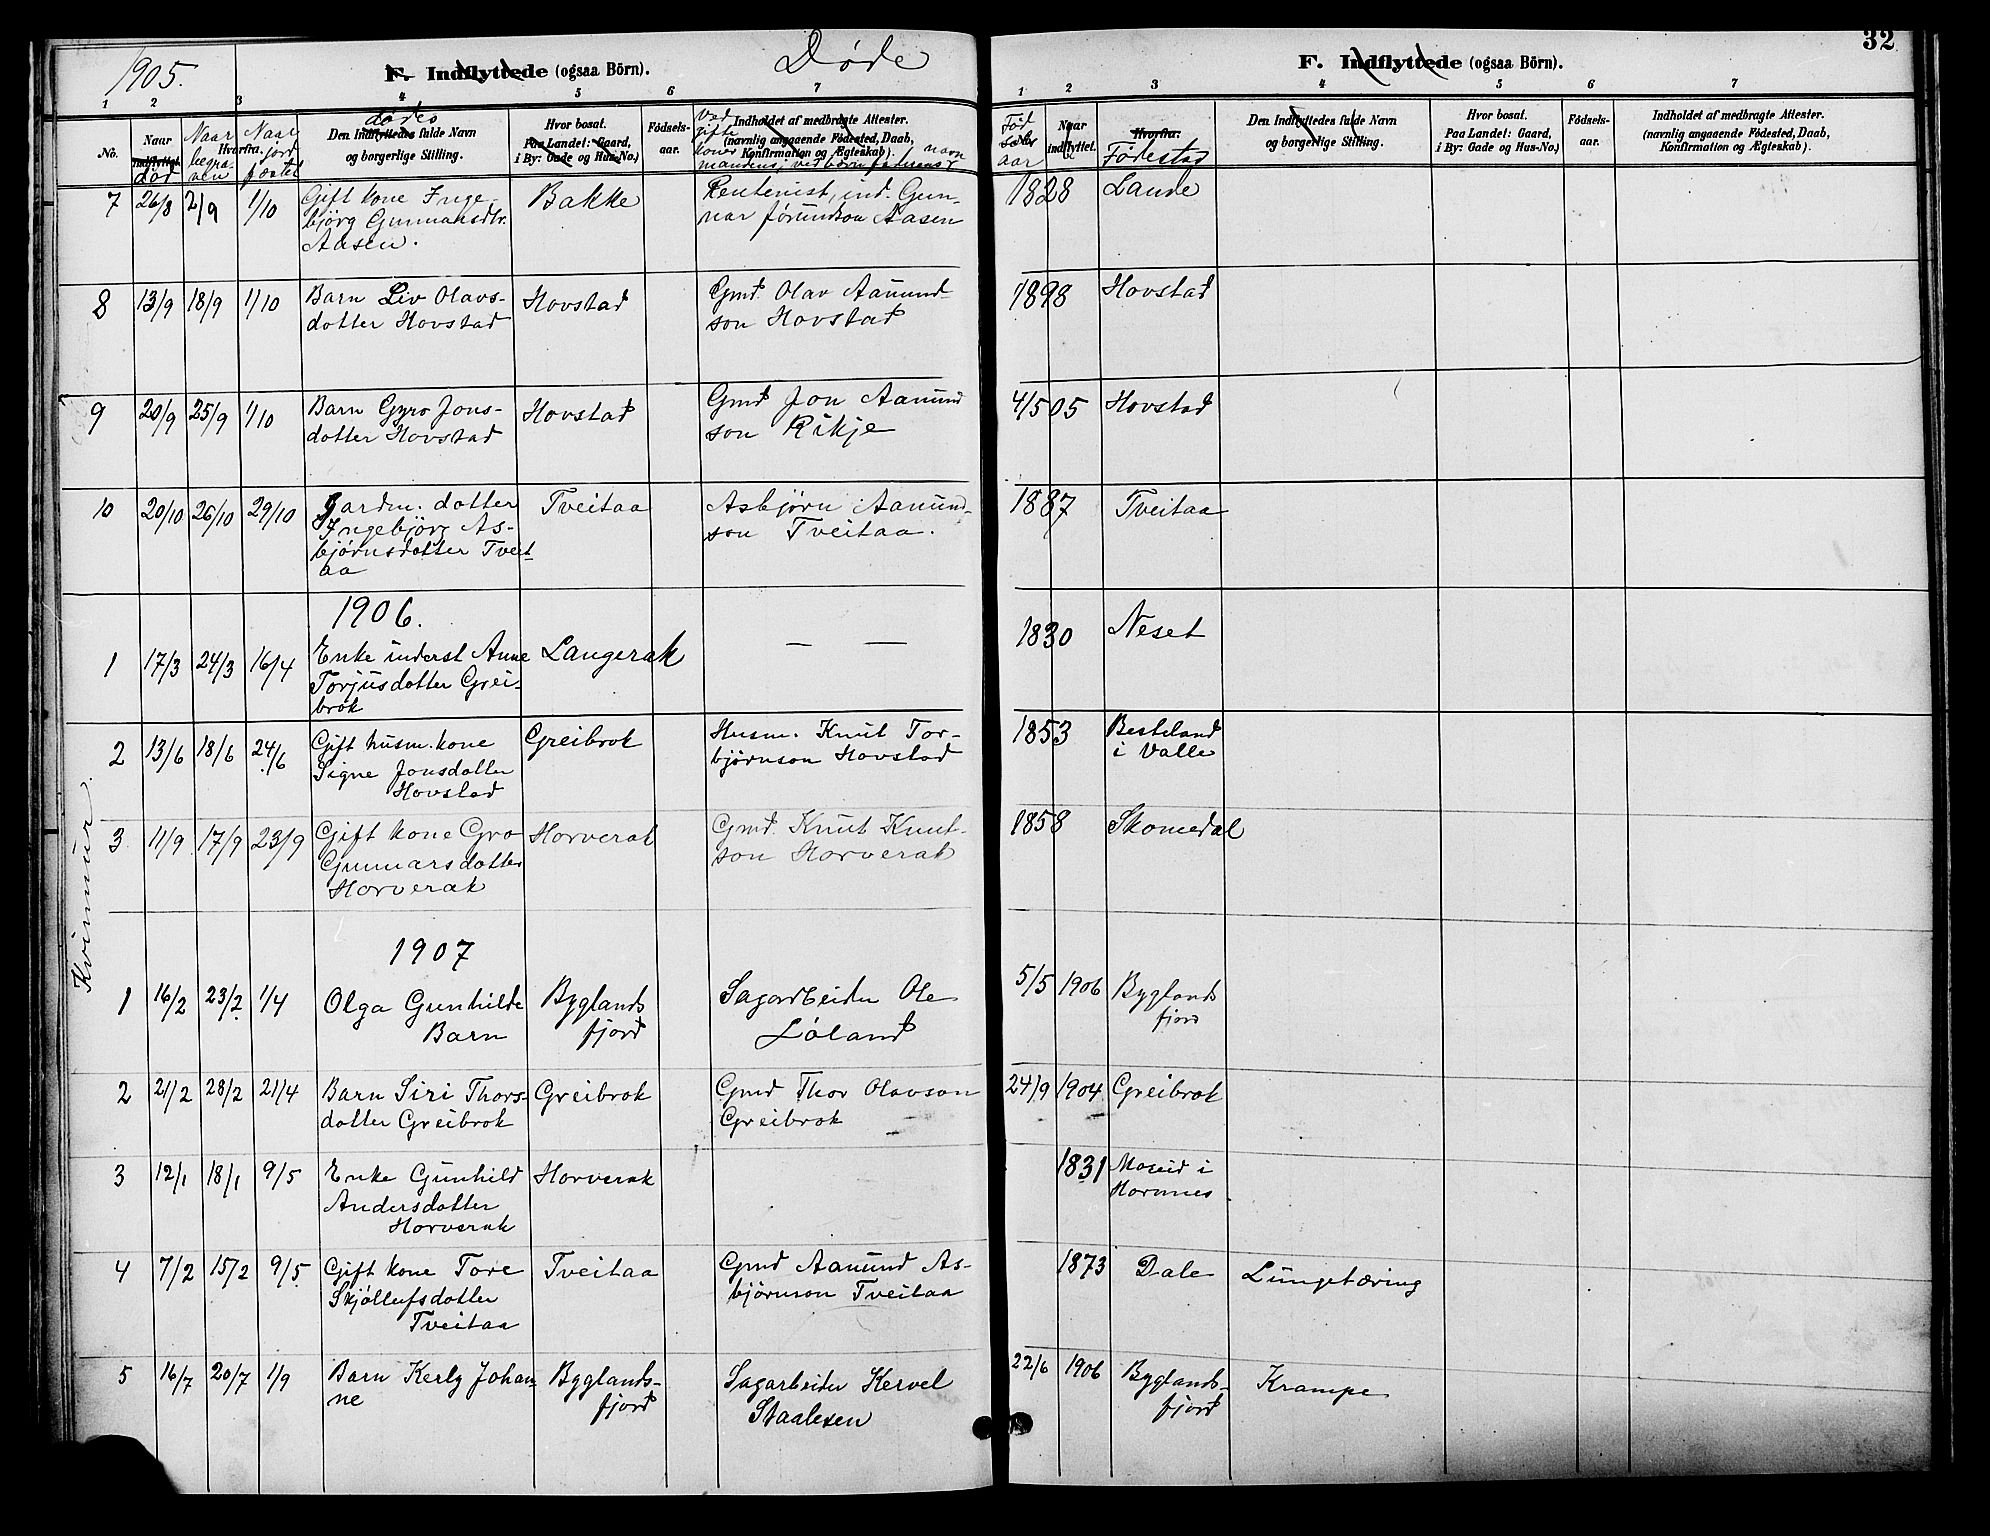 1905.
F. Indflyttede (ogsaa Börn).
Døde
1 2 3 4 5 6 7
No.
Naar indflyttet. død
Naar begraven
Hvorfra. Naar jordfæstet
Den Indflyttedes dødes fulde Navn og borgerlige Stilling.
Hvor bosat.
Paa Landet: Gaard,
i By: Gade og Hus-No.)
Födsels-
aar.
Indholdet af medbragte Attester.
(navnlig angaaende Födested, Daab,
Konfirmation og Ægteskab).
7 26/8 2/9 1/10 Gift kone Inge-
bjørg Gunnarsdtr.
Aasen.
Bakke
Rentenist, ind. Gun-
nar Jørundson Aasen
8 13/9 18/9 1/10 Barn Liv Olavs-
dotter Hovstad
Hovstad
Gmd. Olav Aamund-
son Hovstad
9 20/9 25/9 1/10 Barn Gyro Jons-
dotter Hovstad
Hovstad
Gmd Jon Aamund
son Rikje
10 20/10 26/10 29/10 Gardm. dotter
Ingebjørg As-
bjørnsdotter Tveit-
aa
Tveitaa
Asbjørn Aamund-
son Tveitaa.
1906.
1 17/3 24/3 16/4 Enke inderst Anne
Torjusdotter Grei-
brok
Langerak
— —
2 13/6 18/6 24/6 Gift husm. kone
Signe Jonsdotter
Hovstad
Greibrok
Husm. Knut Tor-
bjørnson Hovstad
3 11/9 17/9 23/9 Gift kone Gro
Gunnarsdotter
Horverak
Horverak
Gmd. Knut Knut-
son Horverak
Kvinnur.
1907
1 16/2 23/2 1/4 Olga Gunhilde
Barn
Byglands
fjord
Sagarbeider Ole
Løland
2 21/2 28/2 21/4 Barn Siri Thors-
dotter Greibrok
Greibrok
Gmd Thor Olavson
Greibrok
3 12/1 18/1 9/5 Enke Gunhild
Andersdotter
Horverak
Horverak
4 7/2 15/2 9/5 Gift kone Tore
Skjøllufsdotter
Tveitaa
Tveitaa
Gmd Aamund As-
bjørnson Tveitaa
5 16/7 20/7 1/9 Barn Kerly Johan-
ne
Byglands-
fjord
Sagarbeider Kervel
Staalesen
32
F. Indflyttede (ogsaa Börn).
1 2 3 4 5 6 7
aar
Naar
indflyttet.
Hvorfra.
Fødestad
Den Indflyttedes fulde Navn
og borgerlige Stilling.
Hvor bosat.
Paa Landet: Gaard,
i By: Gade og Hus-No.)
Födsels-
aar.
Indholdet af medbragte Attester.
(navnlig angaaende Födested, Daab,
Konfirmation og Ægteskab).
1828 Lande
1898 Hovstad
4/5 05 Hovstad
1887 Tveitaa
1830 Neset
1853 Besteland
i Valle
1858 Skomedal
5/5 1906 Byglands
fjord
24/9 1904 Greibrok
1831 Moseid i
Hornnes
1873 Dale Lungetæring
22/6 1906 Byglands-
fjord
Krampe